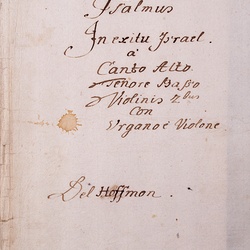 Psalmus
In exitu Israel.
a
Canto Alto.
Tenore Basso
Violinis 2bus
Con
Organo è Violone
Del Hoffmon.